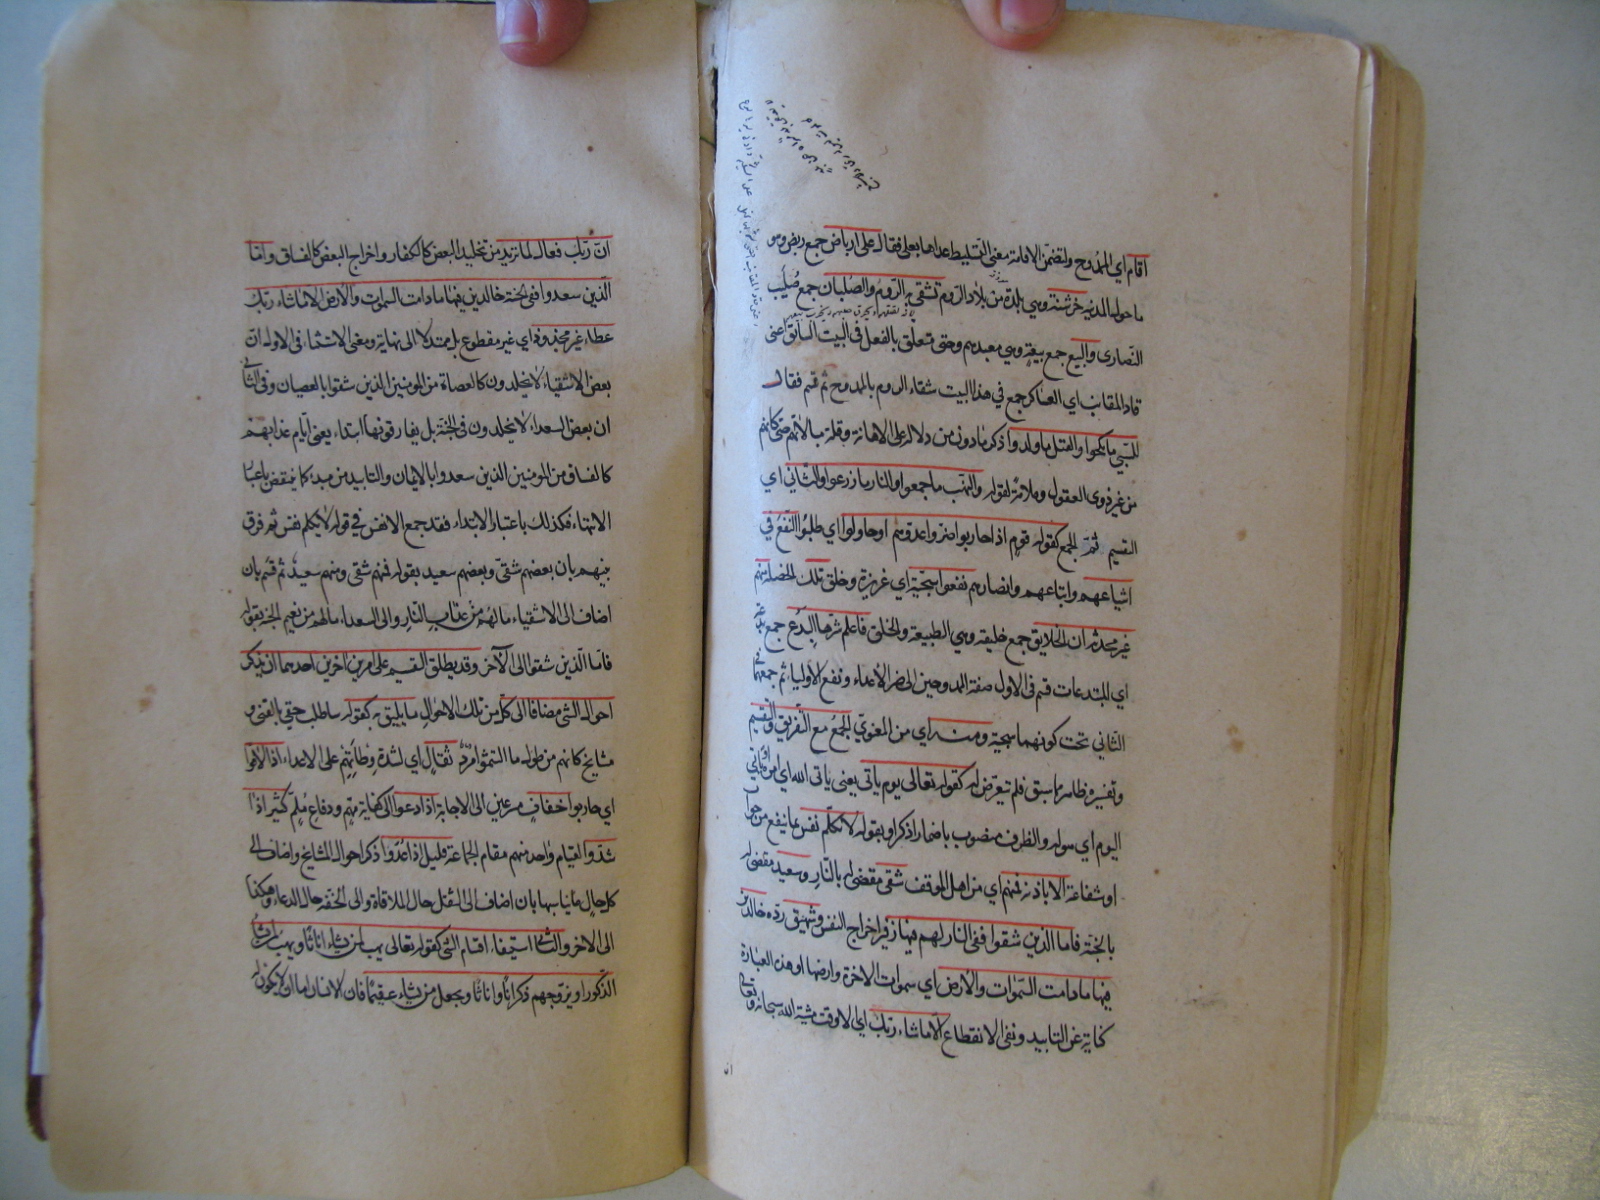 اقام اي الممدوح ولتضمن الاقامة معنى التسليط عداها بعلى فقال على ارباض جمع ربض وهو
ما حول المدينة خرشنة وهي بلدة من بلاد الروم تشقى به الروم والصلبان جمع صليب
النصارى والبيع جمع بيعة وهي معبدهم وحتى متعلق بالفعل في البيت السابق اعنى
قاد المقانب اي العساكر جمع في هذا البيت شقاء الروم بالممدوح ثم قسم فقال
للسبي ما نكحوا والقتل ما ولدوا ذكر ما دون من دلالة على الاهانة وقلة مبالاتهم حتى كانهم
من غير ذوى العقول وملائمة لقوله والنهب ما جمعوا والنار ما زرعوا والثاني اي
التقسيم ثم الجمع كقوله قوم اذا حاربوا ضروا عدوهم او حاولوا اي طلبوا النفع في
اشياعهم واتباعهم وانصارهم نفعوا سجية اي غريزة وخلق تلك الخصلة منهم
غير محدثة ان الخلايق جمع خليقة وهي الطبيعة والخلق فاعلم شرها البدع جمع بدعة
اي المبتدعات قسم في الاول صفة الممدوحين الى ضر الاعداء ونفع الاولياء ثم جمعهما في
الثاني تحت كونهما سجية ومنه اي من المعنوي الجمع مع التفريق والتقسيم
وتفسيره ظاهر مما سبق فلم يتعرض له كقوله تعالى يوم ياتي يعني ياتى الله اي امره او ياتي
اليوم اي هوله والظرف منصوب باضمار اذكر او بقوله لا تكلم نفس بما ينفع من جواب
او شفاعة الا باذنه فمنهم اي من اهل الموقف شقى مقضى له بالنار وسعيد مقضى له
بالجنة فاما الذين شقوا ففى النار لهم فيها زفير اخراج النفس وشهيق رده خالدين
فيها ما دامت السموات والارض اي سموات الاخرة وارضها او هذه العبارة
كناية عن التابيد ونفى الانقطاع الا ما شاء ربك اي الا وقت مشية الله سبحانه وتعالى
ان
ان ربك فعال لما يريد من تخليد البعض كالكفار واخراج البعض كالفساق واما
الذين سعدوا ففى الجنة خالدين فيها ما دامت السموات والارض الا ما شاء ربك
عطاء غير مجذوذ اي غير مقطوع بل ممتد لا الى نهاية ومعنى الاستثناء في الاول ان
بعض الاشقياء لا يخلدون كالعصاة من المومنين الذين شقوا بالعصيان وفى الثاني
ان بعض السعداء لا يخلدون فى الجنة بل يفارقونها ابتداء يعنى ايام عذابهم
كالفساق من المومنين الذين سعدوا بالايمان والتابيد من مبدء كما ينتقض باعتبار
الانتهاء فكذلك باعتبار الابتداء فقد جمع الانفس في قوله لا تكلم نفس ثم فرق
بينهم بان بعضهم شقى وبعضهم سعيد بقوله فمنهم شقى ومنهم سعيد ثم قسم بان
اضاف الى الاشقياء مالهم من عذاب النار والى السعداء مالهم من نعيم الجنة بقوله
فاما الذين شقوا الى الآخر وقد يطلق التقسيم على امرين اخرين احدهما ان يذكر
احوال الشئ مضافا الى كل من تلك الاحوال ما يليق به كقوله ساطلب حقي بالقنى و
مشايخ كانهم من طول ما التثموا مرد ثقال اي لشدة وطأتهم على الاعداء اذا لاقوا
اي حاربوا خفاف مسرعين الى الاجابة اذا دعوا الى كفاية مهم ودفاع ملم كثير اذا
شدوا لقيام واحد منهم مقام الجماعة قليل اذا عدوا ذكر احوال المشايخ واضاف الى
كل حال ما يناسبها بان اضاف الى الثقل حال الملاقاة والى الخفة حال الدعاء وهكذا
الى الاخر والثاني استيفاء اقسام الشئ كقوله تعالى يهب لمن يشاء اناثا ويهب لمن يشاء
الذكور او يزوجهم ذكرانا واناثا ويجعل من يشاء عقيما فان الانسان اما ان لا يكون له